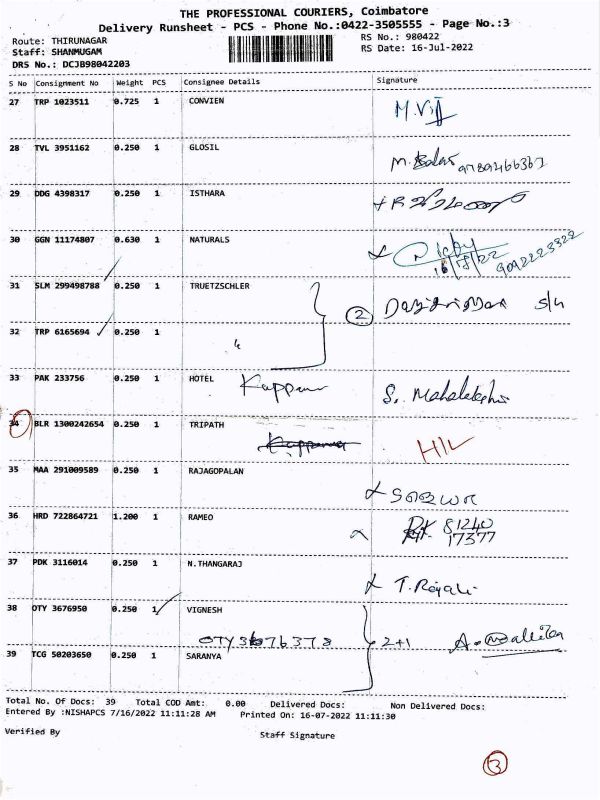 THE PROFESSIONAL COURIERS, Coimbatore
Delivery Runsheet - PCS - Phone No.:0422-3505555 - Page No.:3
Route: THIRUNAGAR RS No.: 980422
Staff: SHANMUGAM RS Date: 16-Jul-2022
DRS No.: DCJB98042203
S No Consignment No Weight PCS Consignee Details Signature
27 TRP 1023511 0.725 1 CONVIEN
28 TVL 3951162 0.250 1 GLOSIL
29 DDG 4398317 0.250 1 ISTHARA
30 GGN 11174807 0.630 1 NATURALS
9092223322
31 SLM 299498788 0.250 1 TRUETZSCHLER
2
32 TRP 6165694 0.250 1 "
33 PAK 233756 0.250 1 HOTEL Kappan S. Mahalakshmi
34 BLR 1300242654 0.250 1 TRIPATH
35 MAA 291009589 0.250 1 RAJAGOPALAN
36 HRD 722864721 1.200 1 RAMEO 81240
17377
37 PDK 3116014 0.250 1 N.THANGARAJ
38 OTY 3676950 0.250 1 VIGNESH
OTY 3676378 2+1
39 TCG 50203650 0.250 1 SARANYA
Total No. Of Docs: 39 Total COD Amt: 0.00 Delivered Docs: Non Delivered Docs:
Entered By :NISHAPCS 7/16/2022 11:11:28 AM Printed On: 16-07-2022 11:11:30
Verified By Staff Signature
3